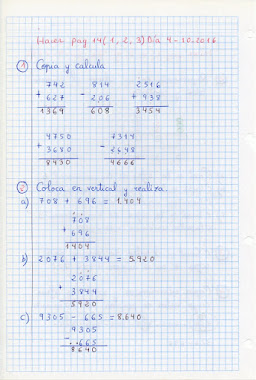 Hacer pag 14 (1, 2, 3) Día 4-10.2016
1 Copia y calcula
742 814 2516
+ 627 - 206 + 938
1369 608 3454
4750 7314
+ 3680 - 2648
8430 4666
2 Coloca en vertical y realiza.
a) 708 + 696 = 1.404
708
+ 696
1404
b) 2076 + 3844 = 5.920
2076
+ 3844
5920
c) 9305 - 665 = 8.640
9305
- 665
8640